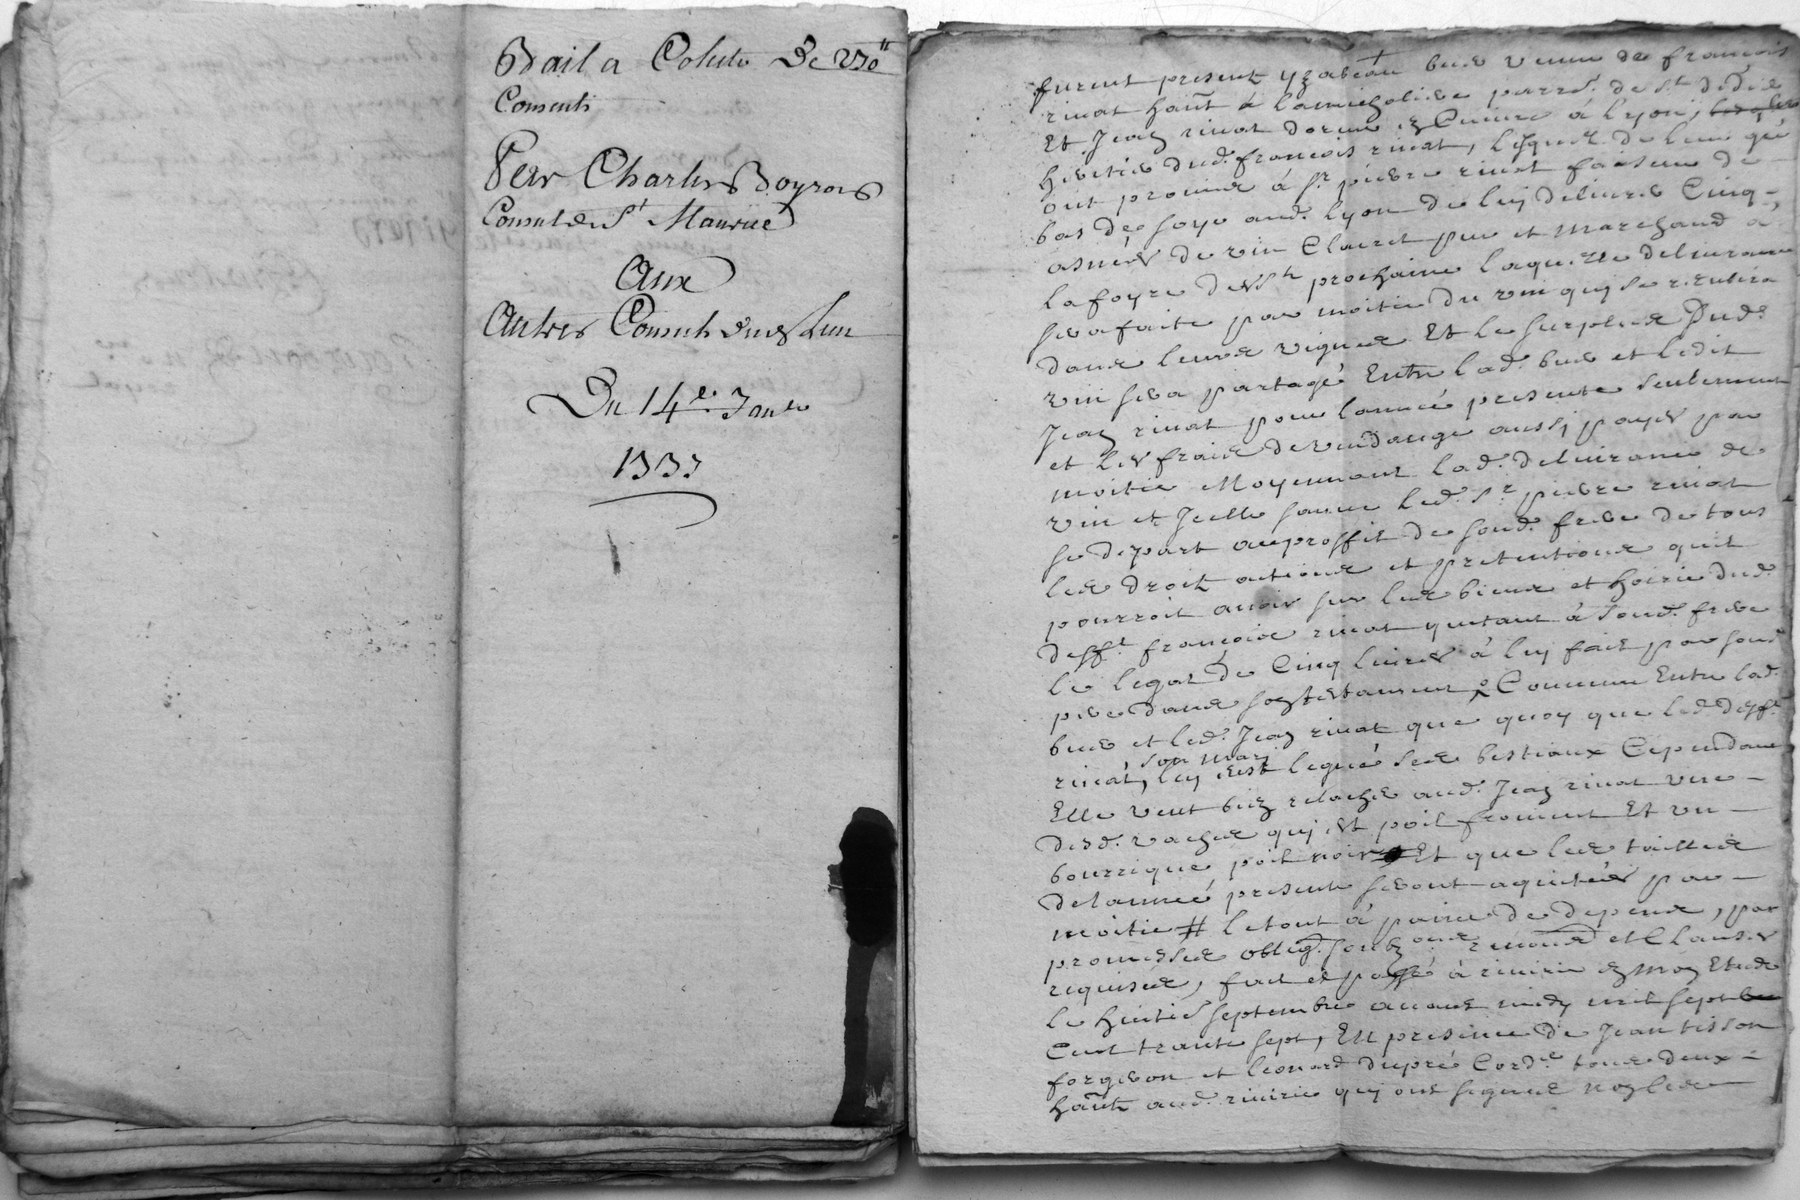 Bail a Colute De
Consents
Per Charles Boyron
Consul de St Maurice
Aux
Autres Consuls
Du 14e Janv
1737
furent present yzabeau bues veuve de francois
rivat habt à parrse de st didier
Et Jean rivat à Lyon,
heritier dud. francois rivat, lesquels de leur gé
ont promis à sr pierre rivat faiseur de
bas de soye aud. Lyon de luy delivrer Cinq
asnées de vin Clairet pur et marchand à
la foyre prochaine laquelle delivrance
sera faite par moitié du vin qui se
dans leurs vignes Et le surplus dud.
vin sera partagé Entre lad. bues et ledit
Jean rivat pour l'année presente seulement
et les frais de vendange aussy payés par
moitié Moyennant lad. delivrance de
vin et Icelle faitte led. sr pierre rivat
se depart au proffit de sond. frere de tous
les droits actions et pretentions quil
pourroit avoir sur les biens et hoirie dud.
defft. francois rivat quitant à sond. frere
le legat de Cinq livres à luy fait par sond
pere dans son testament Convenu Entre lad.
bues et led. Jean rivat que quoy que led. defft.
son mary
rivat, luy aist legué ses bestiaux Cependant
Elle veut bien relacher aud. Jean rivat une
desd. vaches qui est poil froment Et un
bourrique poil noir Et que les tailles
de l'année presente seront aquitées par
moitié # le tout à peine de depens, par
promesses oblig. et Clauses
requises, fait et passé à riverie en mon Etude
le huitie septembre avant midy mil sept
Cent trante sept, En presence de Jean tisson
forgeron et leonard dupré Cord.r tous deux
habts aud. riverie qui ont signés non les